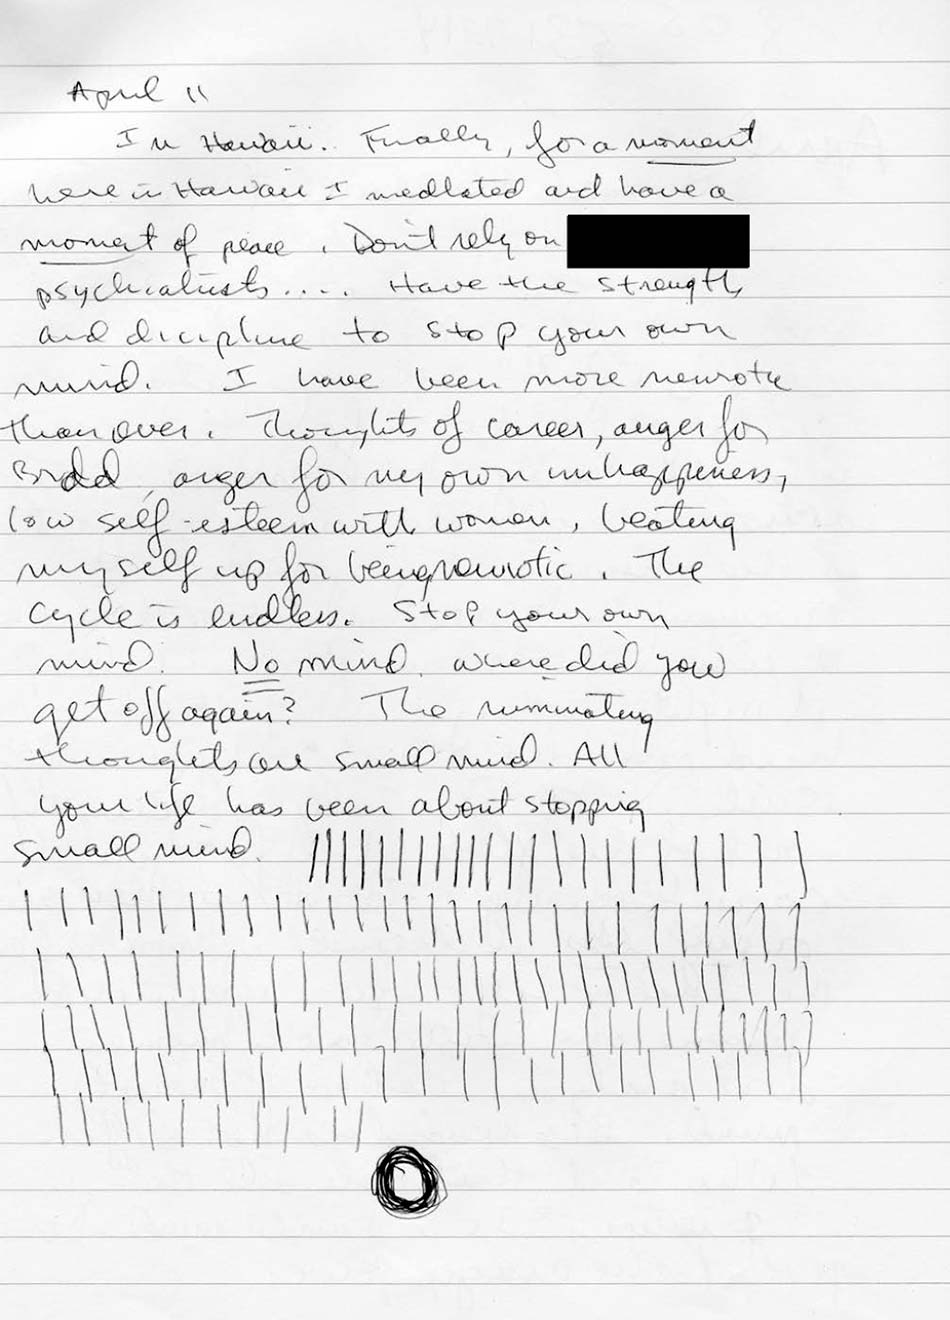 April 11
In Hawaii. Finally, for a moment
here in Hawaii I mediated and have a
moment of peace. Don't rely on
psychiatrists.... Have the strength
and discipline to stop your own
mind. I have been more neurotic
than over. Thoughts of career, anger for
anger for my own unhappiness,
low self-esteem with women, beating
myself up for being neurotic. The
cycle is endless. Stop your own
mind. No mind. where did you
get off again? The ruminating
thoughts are small mind. All
your life has been about stopping
small mind.